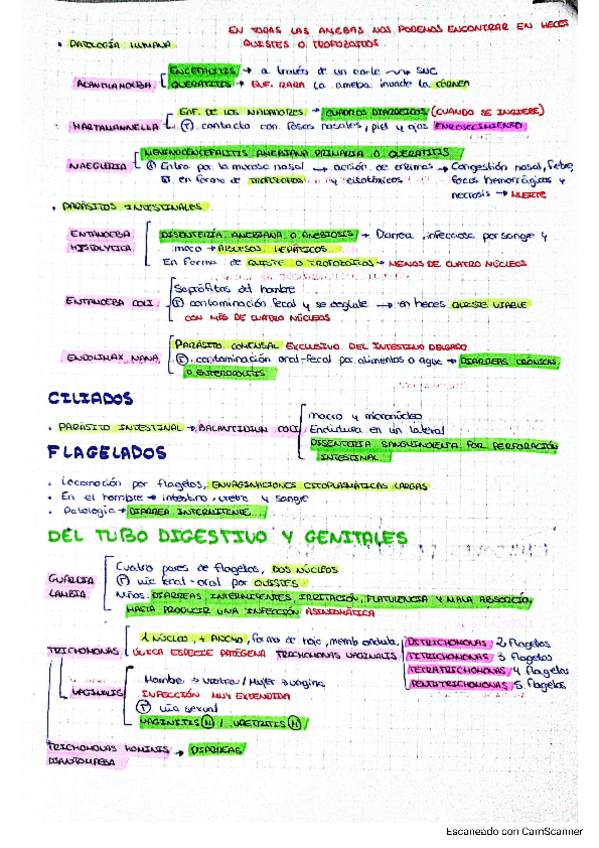 EN TODAS LAS AMEBAS NOS PODEMOS ENCONTRAR EN HECES
QUISTES O TROFOZOITOS
• PATOLOGÍA HUMANA
ACANTHAMOEBA
ENCEFALITIS → a través de un corte → SNC
QUERATITIS → ENF. RARA La ameba invade la CÓRNEA
HARTAMANNELLA
ENF. DE LOS NADADORES → CUADROS DIARREICOS (CUANDO SE INGIERE)
(T) contacto con fosas nasales, piel y ojos ENROJECIMIENTO
NAEGLERIA
MENINGOENCEFALITIS AMEBIANA PRIMARIA O QUERATITIS
Entra por la mucosa nasal → acción de enzimas → Congestión nasal, fiebre,
en forma de TROFOZOITOS y citotóxicos focos hemorrágicos y
necrosis → MUERTE
• PARÁSITOS INTESTINALES
ENTAMOEBA HISTOLYTICA
DISENTERÍA AMEBIANA O AMEBIOSIS → Diarrea, infecciosa por sangre y
moco → ABSCESOS HEPÁTICOS
En forma de QUISTE O TROFOZOITOS → MENOS DE CUATRO NÚCLEOS
ENTAMOEBA COLI
Saprófitos del hombre
(T) contaminación fecal y se deglute → en heces QUISTE VIABLE
CON MÉS DE CUATRO NÚCLEOS
ENDOLIMAX NANA
PARÁSITO COMENSAL EXCLUSIVO DEL INTESTINO DELGADO
(T) contaminación oral-fecal por alimentos o agua → DIARREAS CRÓNICAS
O ENTEROCOLITIS
CILIADOS
• PARÁSITO INTESTINAL → BALANTIDIUN COLI
macro y micronúcleo
Endidura en un lateral
DISSENTERIA SANGUINOLENTA POR PERFORACIÓN
INTESTINAL
FLAGELADOS
• Locomoción por flagelos, ENVAGINACIONES CITOPLASMÁTICAS LARGAS
• En el hombre → intestino, uretra y sangre
• Patología → DIARREA INTERMITENTE
DEL TUBO DIGESTIVO Y GENITALES
GUARDIA LAMBIA
Cuatro pares de flagelos, DOS NÚCLEOS
(T) vía fecal-oral por QUISTES
Niños: DIARREAS, INTERMITENTES, IRRITACIÓN, FLATULENCIA Y MALA ABSORCIÓN
HASTA PRODUCIR UNA INFECCIÓN ASINTOMÁTICA
TRICHOMONAS
1 NÚCLEO, + ANCHO, forma de hoja, memb ondula,
ÚNICA ESPECIE PATÉGENA TRICHOMONAS VAGINALIS
DITRICHOMONAS 2 flagelos
TRITRICHOMONAS 3 flagelos
TETRATRICHOMONAS 4 flagelos
PENTATRICHOMONAS 5 flagelos
VAGINALIS
Hombre → uretra / Mujer → vagina
INFECCIÓN MUY EXTENDIDA
(T) vía sexual
VAGINITIS (M) / URETRITIS (H)
TRICHOMONAS HOMINIS → DIARREAS
DIANTOMEBA
Escaneado con CamScanner